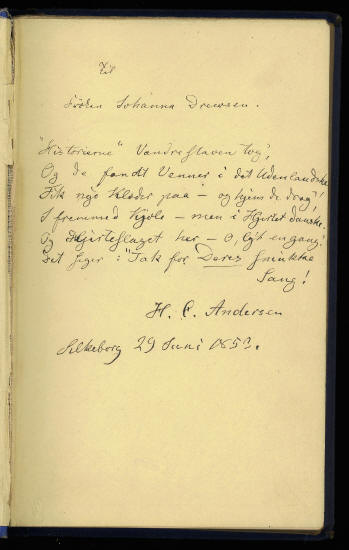 Til
Frøken Johanna Drewsen.
"Historierne" Vandrestaven tog,
Og de fandt Venner i det Udenlandske.
Fik nye Klæder paa – og hjem de drog!
I fremmed Kjole – men i Hjertet danske.
Og Hjerteslaget her – O, lyt engang!
Det siger: "Tak for Deres smukke
Sang!
H. C. Andersen
Silkeborg 29 Juni 1853.